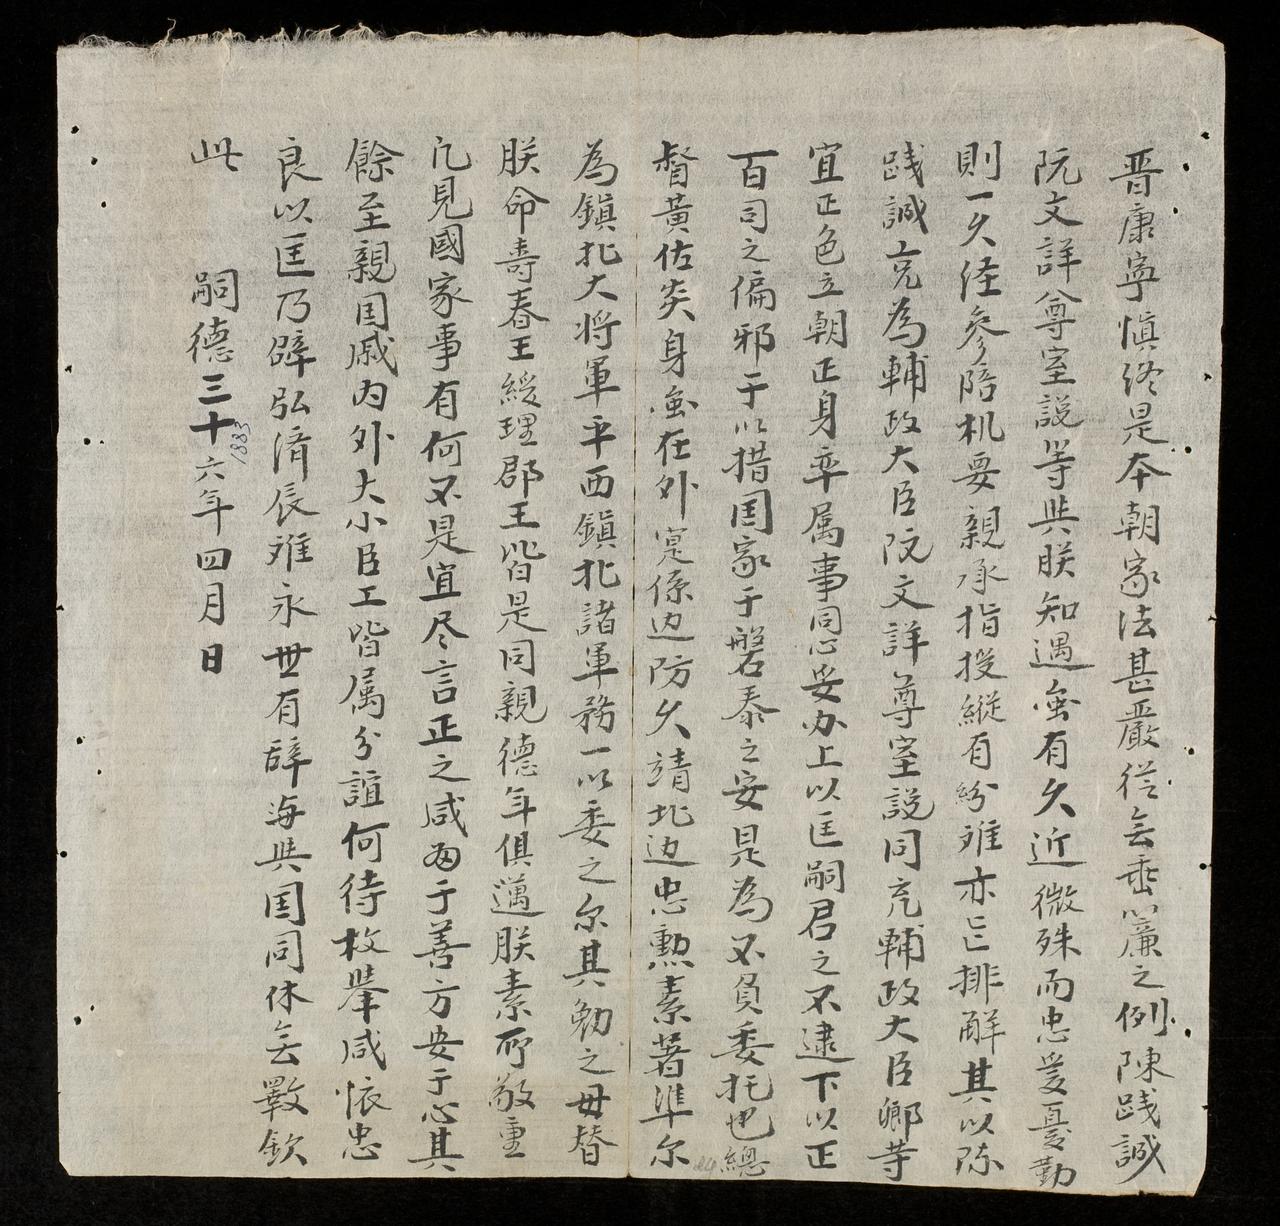 晋康寧慎終是本朝家法甚嚴從无垂簾之例陳踐誠
阮文詳尊室說等與朕知遇虽有久近微殊而忠爱憂勤
則一久经參陪机要親承指授縱有紛难亦已排解其以陈
踐誠充為輔政大臣阮文詳尊室説同充輔政大臣卿等
宜正色立朝正身率属事同心妥办上以匡嗣君之不逮下以正
百司之偏邪于以措国家于磐泰之安是為不負委托也總
督黃佐炎身虽在外寔係边防久靖北边忠勲素著準尔
為鎮北大将軍平西鎮北諸軍務一以委之尔其勉之毋替
朕命壽春王綏理郡王皆是同親德年俱邁朕素所敬重
凡見國家事有何不是宜尽言正之咸囿于善方安于心其
餘至親国戚内外大小臣工皆属分誼何待枚舉咸懷忠
良以匡乃辟弘済辰难永世有辞海與国同休无斁欽
此 嗣德三十六年四月日
1883